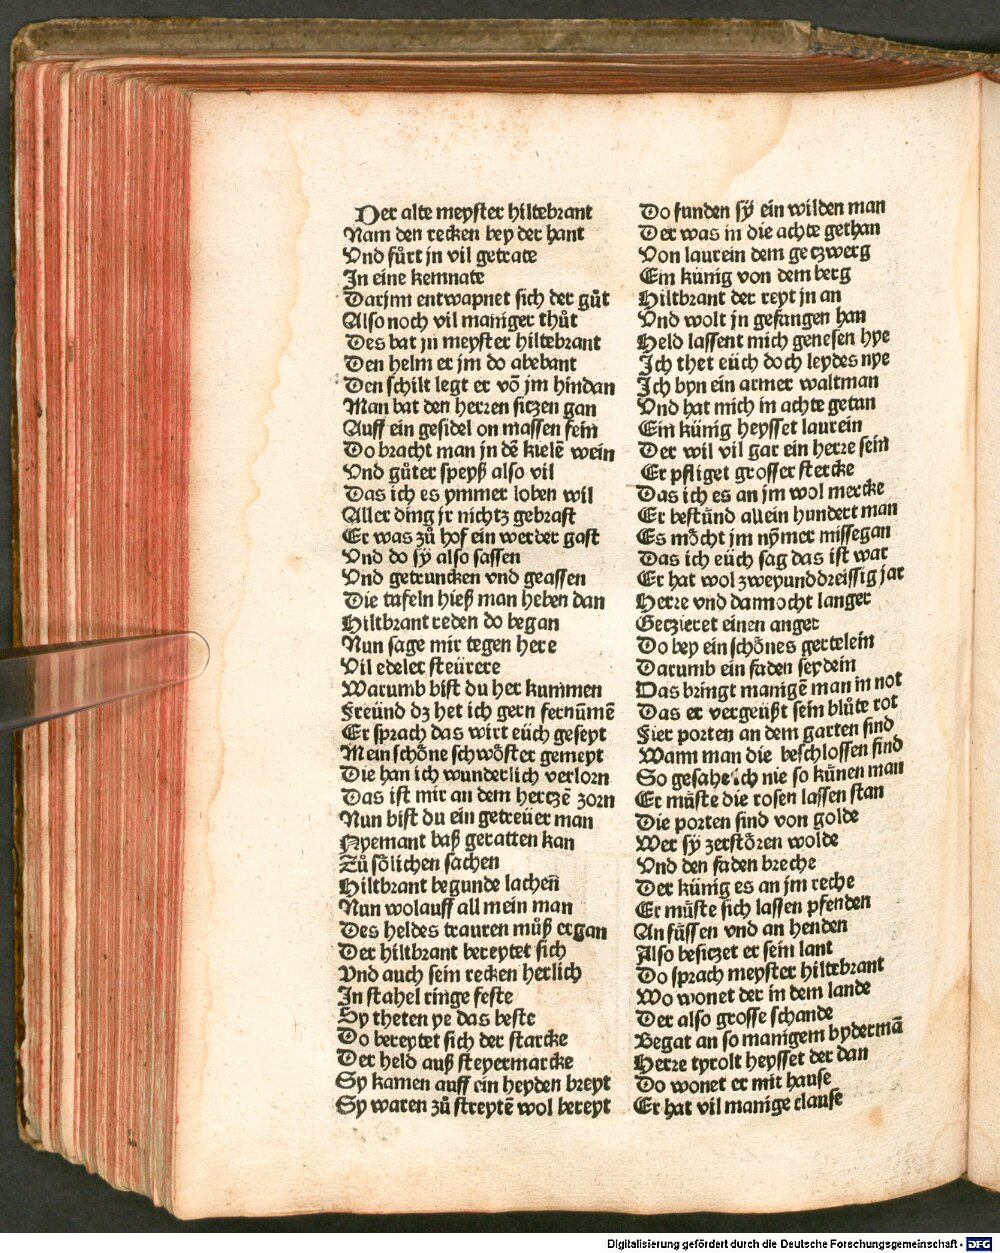 Der alte meyster hiltebrant
Nam den recken bey der hant
Vnd fůrt jn vil getrate
In eine kemnate
Darjnn entwapnet sich der gůt
Also noch vil maniger thůt
Des bat jn meyster hiltebrant
Den helm er jm do abebant
Den schilt legt er võ jm hindan
Man bat den herren siczen gan
Auff ein gesidel on massen fein
Do bracht man jn dẽ kielẽ wein
Vnd gůter speyß also vil
Das ich es ymmer loben wil
Aller ding jr nichtz gebrast
Er was zů hof ein werder gast
Vnd do sÿ also sassen
Vnd getruncken vnd geassen
Die tafeln hieß man heben dan
Hiltbrant reden do began
Nun sage mir tegen here
Vil edeler steürere
Warumb bist du her kummen
Freünd dz het ich gern fernũmẽ
Er sprach das wirt eüch geseyt
Mein schöne schwöster gemeyt
Die han ich wunderlich verlorn
Das ist mir an dem hertzẽ zorn
Nun bist du ein getreüer man
Nyemant baß geratten kan
Zů sölichen sachen
Hiltbrant begunde lachen
Nun wolauff all mein man
Des heldes trauren můß ergan
Der hiltbrant bereytet sich
Vnd auch sein recken herlich
In stahel ringe feste
Sy theten ye das beste
Do bereytet sich der starcke
Der held auß steyermarcke
Sy kamen auff ein heyden breyt
Sy waren zů streytẽ wol bereyt
Do funden sÿ ein wilden man
Der was in die achte gethan
Von laurein dem geczwerg
Ein künig von dem berg
Hiltbrant der reyt jn an
Vnd wolt jn gefangen han
Held lassent mich genesen hye
Ich thet eüch doch leydes nye
Ich byn ein armer waltman
Vnd hat mich in achte getan
Ein künig heysset laurein
Der wil vil gar ein herre sein
Er pfliget grosser stercke
Das ich es an jm wol mercke
Er bestünd allein hundert man
Es möcht jm nÿmer missegan
Das ich eüch sag das ist war
Er hat wol zweyunddreissig jar
Herre vnd dannocht langer
Geczieret einen anger
Do bey ein schönes gertelein
Darumb ein faden seydein
Das bringt manigẽ man in not
Das er vergeüßt sein blůte rot
Fier porten an dem garten sind
Wann man die beschlossen find
So gesahe ich nie so künen man
Er můste die rosen lassen stan
Die porten sind von golde
Wer sÿ zerstören wolde
Vnd den faden breche
Der künig es an jm reche
Er můste sich lassen pfenden
An füssen vnd an henden
Also besiczet er sein lant
Do sprach meyster hiltebrant
Wo wonet der in dem lande
Der also grosse schande
Begat an so manigem bydermã
Herre tyrolt heysset der dan
Do wonet er mit hause
Er hat vil manige clause
Digitalisierung gefördert durch die Deutsche Forschungsgemeinschaft - DFG